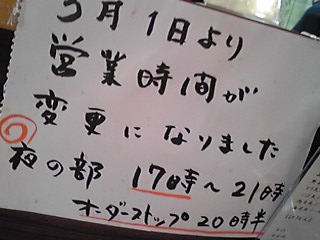 月1日より
営業時間が
変更になりました
夜の部 17時〜21時
オーダーストップ20時半